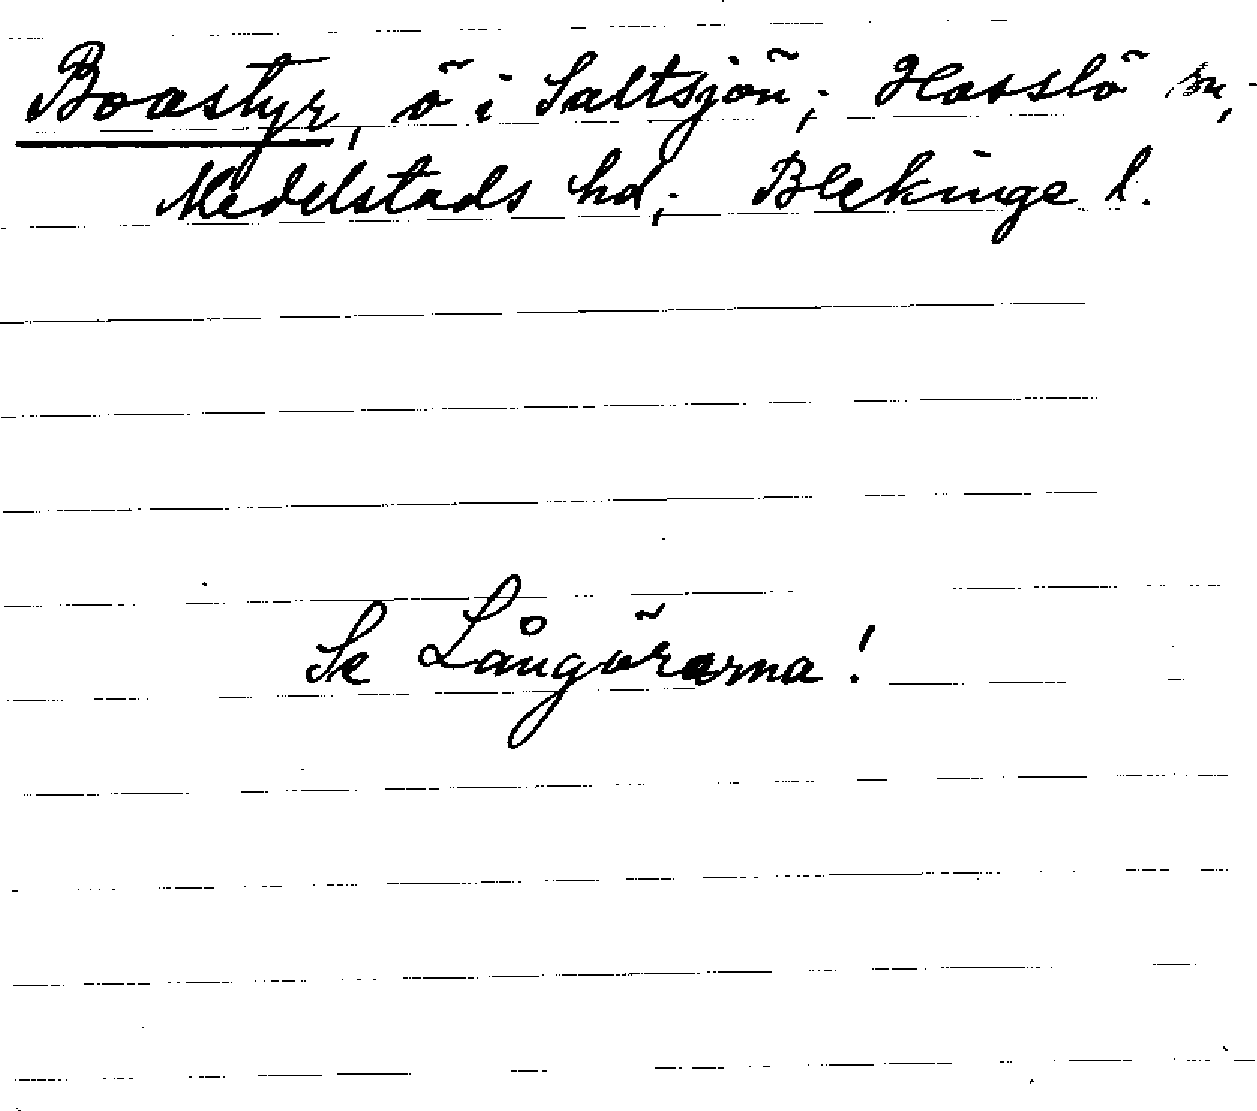 Boastyr, ö i Saltsjön; Hasslö sn,
Medelstads hd; Blekinge l.
Se Långörarna!